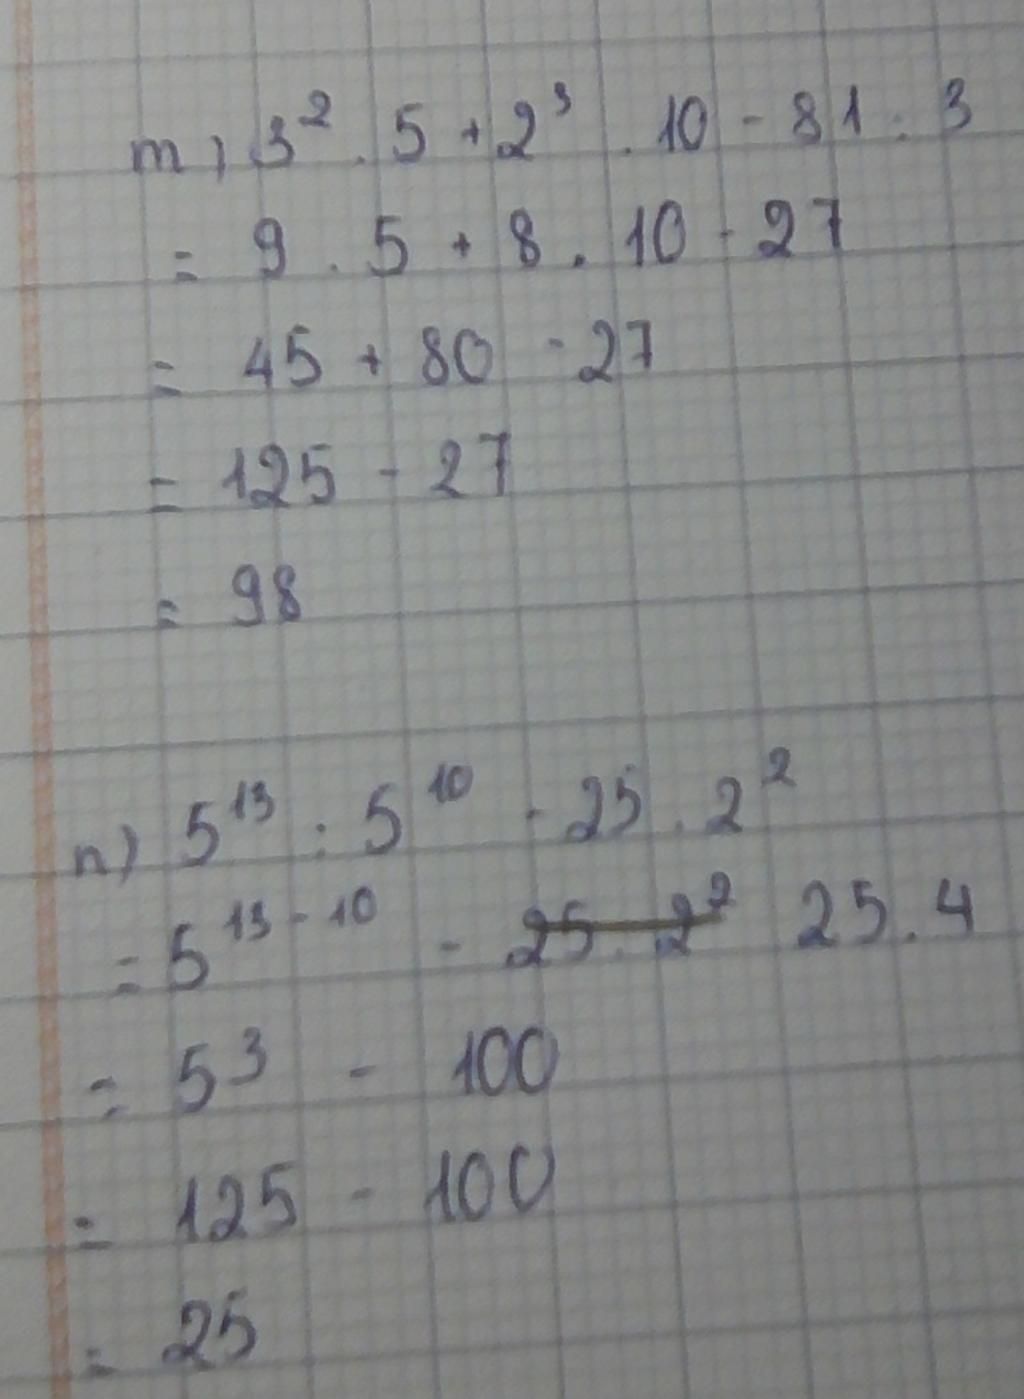 m) 3² . 5 + 2³ . 10 - 81 : 3
= 9 . 5 + 8 . 10 - 27
= 45 + 80 - 27
= 125 - 27
= 98
n) 5¹³ : 5¹⁰ - 25 . 2²
= 5¹³⁻¹⁰ - ~~25 . 2²~~ 25 . 4
= 5³ - 100
= 125 - 100
= 25